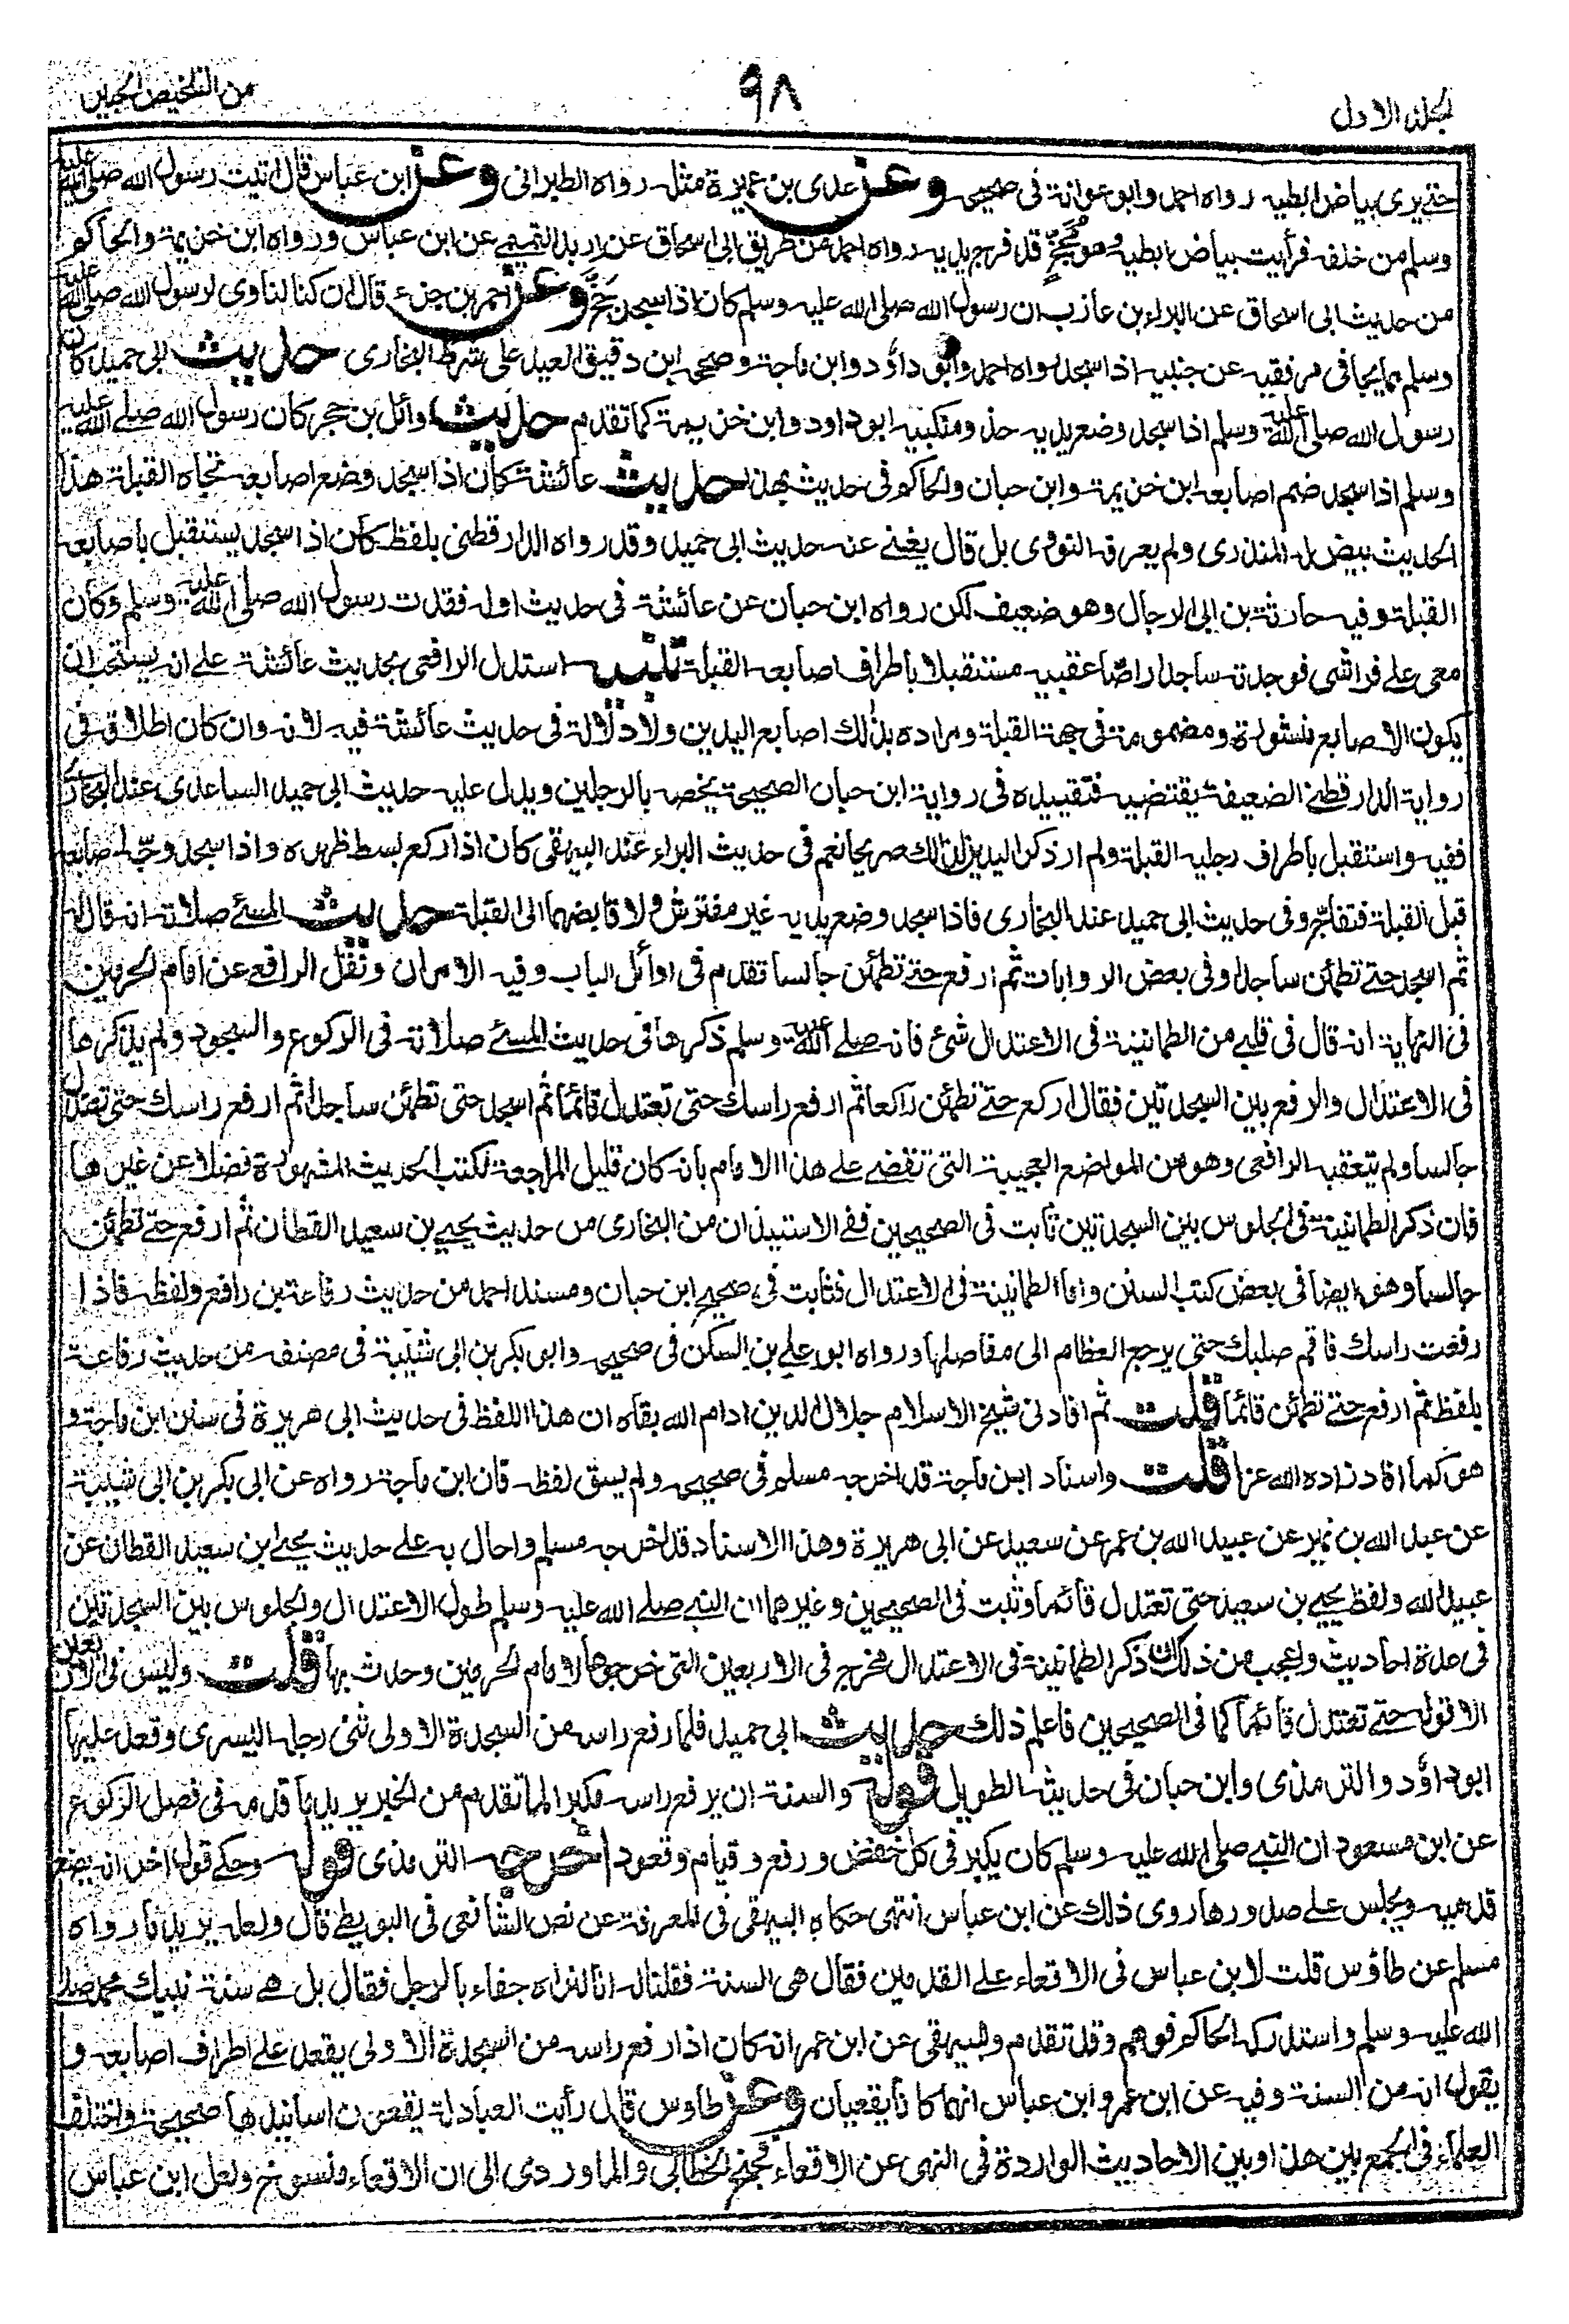 الجلد الاول
٩٨
من التلخيص الحبير
حتى يرى بياض ابطيه رواه احمد وابو عوانة فى صحيحه وعن عدى بن عميرة مثله رواه الطبرانى وعن ابن عباس قال اتيت رسول الله صلى الله عليه
وسلم من خلفه فرأيت بياض ابطيه وهو مُجَخٍّ قد فرج يديه رواه احمد من طريق ابى اسحاق عن اربد التميمى عن ابن عباس ورواه ابن خزيمة والحاكم
من حديث ابى اسحاق عن البراء بن عازب ان رسول الله صلى الله عليه وسلم كان اذا سجد جَخَّ وعن احمر بن جزء قال ان كنا لناوى لرسول الله صلى الله عليه
وسلم مما يجافى مرفقيه عن جنبيه اذا سجد رواه احمد وابو داؤد وابن ماجة وصححه ابن دقيق العيد على شرط البخارى حديث ابى حميد كان
رسول الله صلى الله عليه وسلم اذا سجد وضع يديه حذو منكبيه ابو داود وابن خزيمة كما تقدم حديث وائل بن حجر كان رسول الله صلے الله عليه
وسلم اذا سجد ضم اصابعه ابن خزيمة وابن حبان والحاكم فى حديث بهذا حديث عائشة كان اذا سجد وضع اصابعه تجاه القبلة هذا
الحديث بيض له المنذرى ولم يعرفه النووى بل قال يغنے عنه حديث ابى حميد وقد رواه الدارقطنى بلفظ كان اذا سجد يستقبل باصابعه
القبلة وفيه حارثة بن ابى الرجال وهو ضعيف لكن رواه ابن حبان عن عائشة فى حديث اوله فقدت رسول الله صلى الله عليه وسلم وكان
معى علے فراشى فوجدته ساجدا راصّا عقبيه مستقبلا باطراف اصابعه القبلة تنبيه استدل الرافعى بحديث عائشة علے انه يستحب ان
يكون الاصابع منشورة ومضمومة فى جهة القبلة ومراده بذلك اصابع اليدين ولا دلالة فى حديث عائشة فيه لانه وان كان اطلاقه فى
رواية الدارقطنے الضعيفة يقتضيه فتقييده فى رواية ابن حبان الصحيحة يخصه بالرجلين ويدل عليه حديث ابى حميد الساعدى عند البخارى
ففيه واستقبل باطراف رجليه القبلة ولم ار ذكر اليدين لذلك صريحا نعم فى حديث البراء عند البيهقى كان اذا ركع بسط ظهره واذا سجد وجّه اصابعه
قبل القبلة فتفاجّ وفى حديث ابى حميد عند البخارى فاذا سجد وضع يديه غير مفترش ولا قابضهما الى القبلة حديث المسئے صلاته انه قال له
ثم اسجد حتے تطمئن ساجدا وفى بعض الروايات ثم ارفع حتے تطمئن جالسا تقدم فى اوائل الباب وفيه الامران ونقل الرافعے عن امام الحرمين
فى النهاية انه قال فى قلبے من الطمانينة فى الاعتدال شئ فانه صلے الله عليه وسلم ذكرها فى حديث المسئے صلاته فى الركوع والسجود ولم يذكرها
فى الاعتدال والرفع بين السجدتين فقال اركع حتے تطمئن راكعا ثم ارفع راسك حتى تعتدل قائما ثم اسجد حتى تطمئن ساجدا ثم ارفع راسك حتى تعتدل
جالسا ولم يتعقبه الرافعى وهو من المواضع العجيبة التى تقضے علے هذا الامام بانه كان قليل المراجعة لكتب الحديث المشهورة فضلا عن غيرها
فان ذكر الطمانينة فى الجلوس بين السجدتين ثابت فى الصحيحين ففے الاستيذان من البخارى من حديث يحيے بن سعيد القطان ثم ارفع حتے تطمئن
جالسا وهو ايضا فى بعض كتب السنن واما الطمانينة فى الاعتدال فثابت فى صحيح ابن حبان ومسند احمد من حديث رفاعة بن رافع ولفظه فاذا
رفعت راسك فاقم صلبك حتى يرجع العظام الى مفاصلها ورواه ابو علے بن السكن فى صحيحه وابو بكر بن ابى شيبة فى مصنفه من حديث رفاعة
بلفظ ثم ارفع حتے تطمئن قائما قلت ثم افادنى شيخ الاسلام جلال الدين ادام الله بقاه ان هذا اللفظ فى حديث ابى هريرة فى سنن ابن ماجة و
هو كما افاد زاده الله عزا قلت واسناد ابن ماجة قد اخرجه مسلم فى صحيحه ولم يسق لفظه فان ابن ماجة رواه عن ابى بكر بن ابى شيبة
عن عبد الله بن نمير عن عبيد الله بن عمر عن سعيد عن ابى هريرة وهذا الاسناد قد اخرجه مسلم واحال به علے حديث يحيے بن سعيد القطان عن
عبيد الله ولفظ يحيے بن سعيد حتى تعتدل قائما وثبت فى الصحيحين وغيرهما ان النبے صلے الله عليه وسلم طول الاعتدال والجلوس بين السجدتين
فى عدة احاديث واعجب من ذلك ان ذكر الطمانينة فى الاعتدال مخرج فى الاربعين التى خرجوها لامام الحرمين وحدث بها قلت وليس فى الاربعين
الا قوله حتے تعتدل قائما كما فى الصحيحين فاعلم ذلك حديث ابى حميد فلما رفع راسه من السجدة الاولى ثنى رجله اليسرى وقعد عليها
ابو داؤد والترمذى وابن حبان فى حديثه الطويل قوله والسنة ان يرفع راسه مكبرا لما تقدم من الخبر يريد ما قدمه فى فصل الركوع
عن ابن مسعود ان النبے صلى الله عليه وسلم كان يكبر فى كل خفض ورفع وقيام وقعود اخرجه الترمذى قوله وحكے قول اخر انه يضع
قدميه ويجلس علے صدورها روى ذلك عن ابن عباس انتهى حكاه البيهقى فى المعرفة عن نص الشافعى فى البويطے قال ولعله يريد ما رواه
مسلم عن طاؤس قلت لابن عباس فى الاقعاء علے القدمين فقال هى السنة فقلنا له انا لنراه جفاء بالرجل فقال بل هے سنة نبيك محمد صلے
الله عليه وسلم واستدركه الحاكم فوهم وقد تقدم وللبيهقى عن ابن عمر انه كان اذا رفع راسه من السجدة الاولى يقعد علے اطراف اصابعه و
يقول انه من السنة وفيه عن ابن عمر وابن عباس انهما كانا يقعيان وعن طاوس قال رأيت العبادلة يقعون اسانيدها صحيحة واختلف
العلماء فى الجمع بين هذا وبين الاحاديث الواردة فى النهى عن الاقعاء فجنح الخطابى والماوردى الى ان الاقعاء منسوخ ولعل ابن عباس